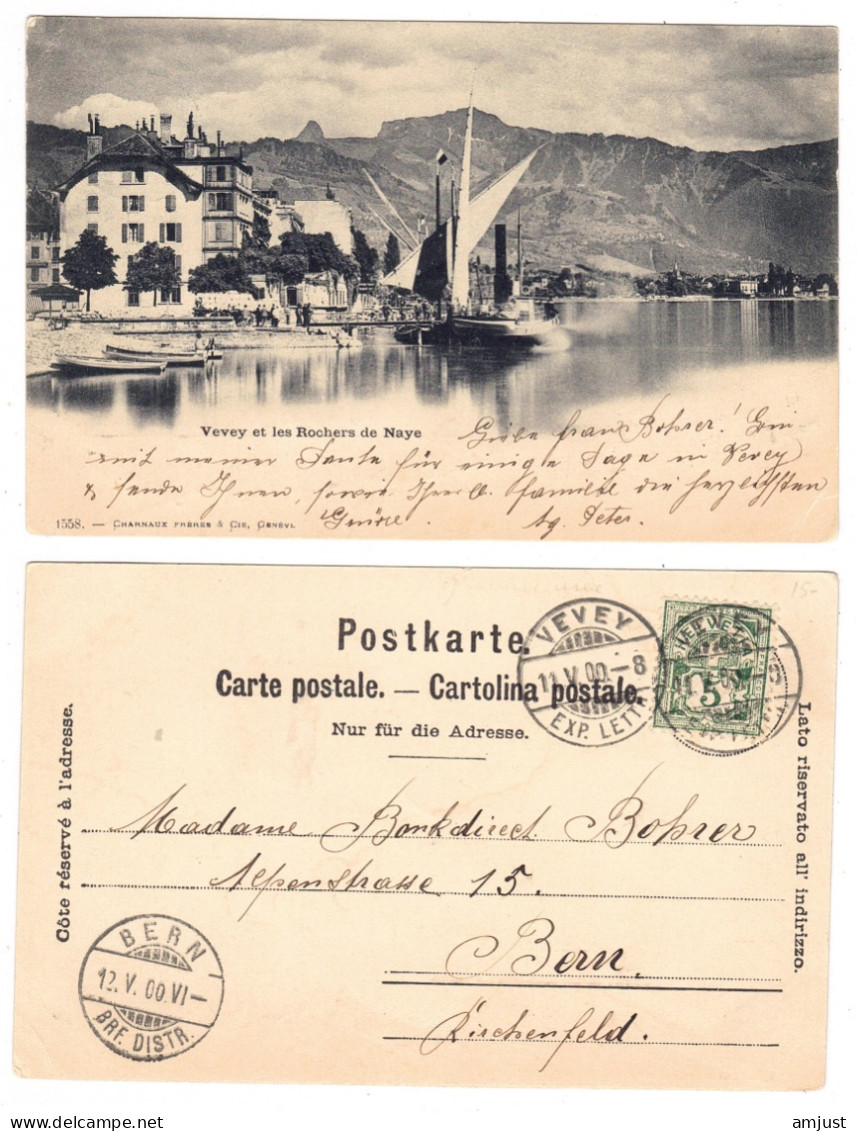 Vevey et les Rochers de Naye
Liebe Frau Bohrer! Bin
mit meiner Tante für einige Tage in Vevey
& sende Ihnen, sowie Ihrer l. Familie die herzlichsten
Grüsse.
1558. — CHARNAUX FRÈRES & CIE, GENÈVE.
15-
Postkarte.
Carte postale. — Cartolina postale.
Nur für die Adresse.
Côte réservé à l'adresse.
Lato riservato all' indirizzo.
VEVEY
11.V.00.–8
EXP. LETT.
HELVETIA
5
Madame Bankdirect. Bohrer
Alpenstrasse 15.
Bern.
Kirchenfeld.
BERN
12.V.00.VI–
BRF. DISTR.
amjust